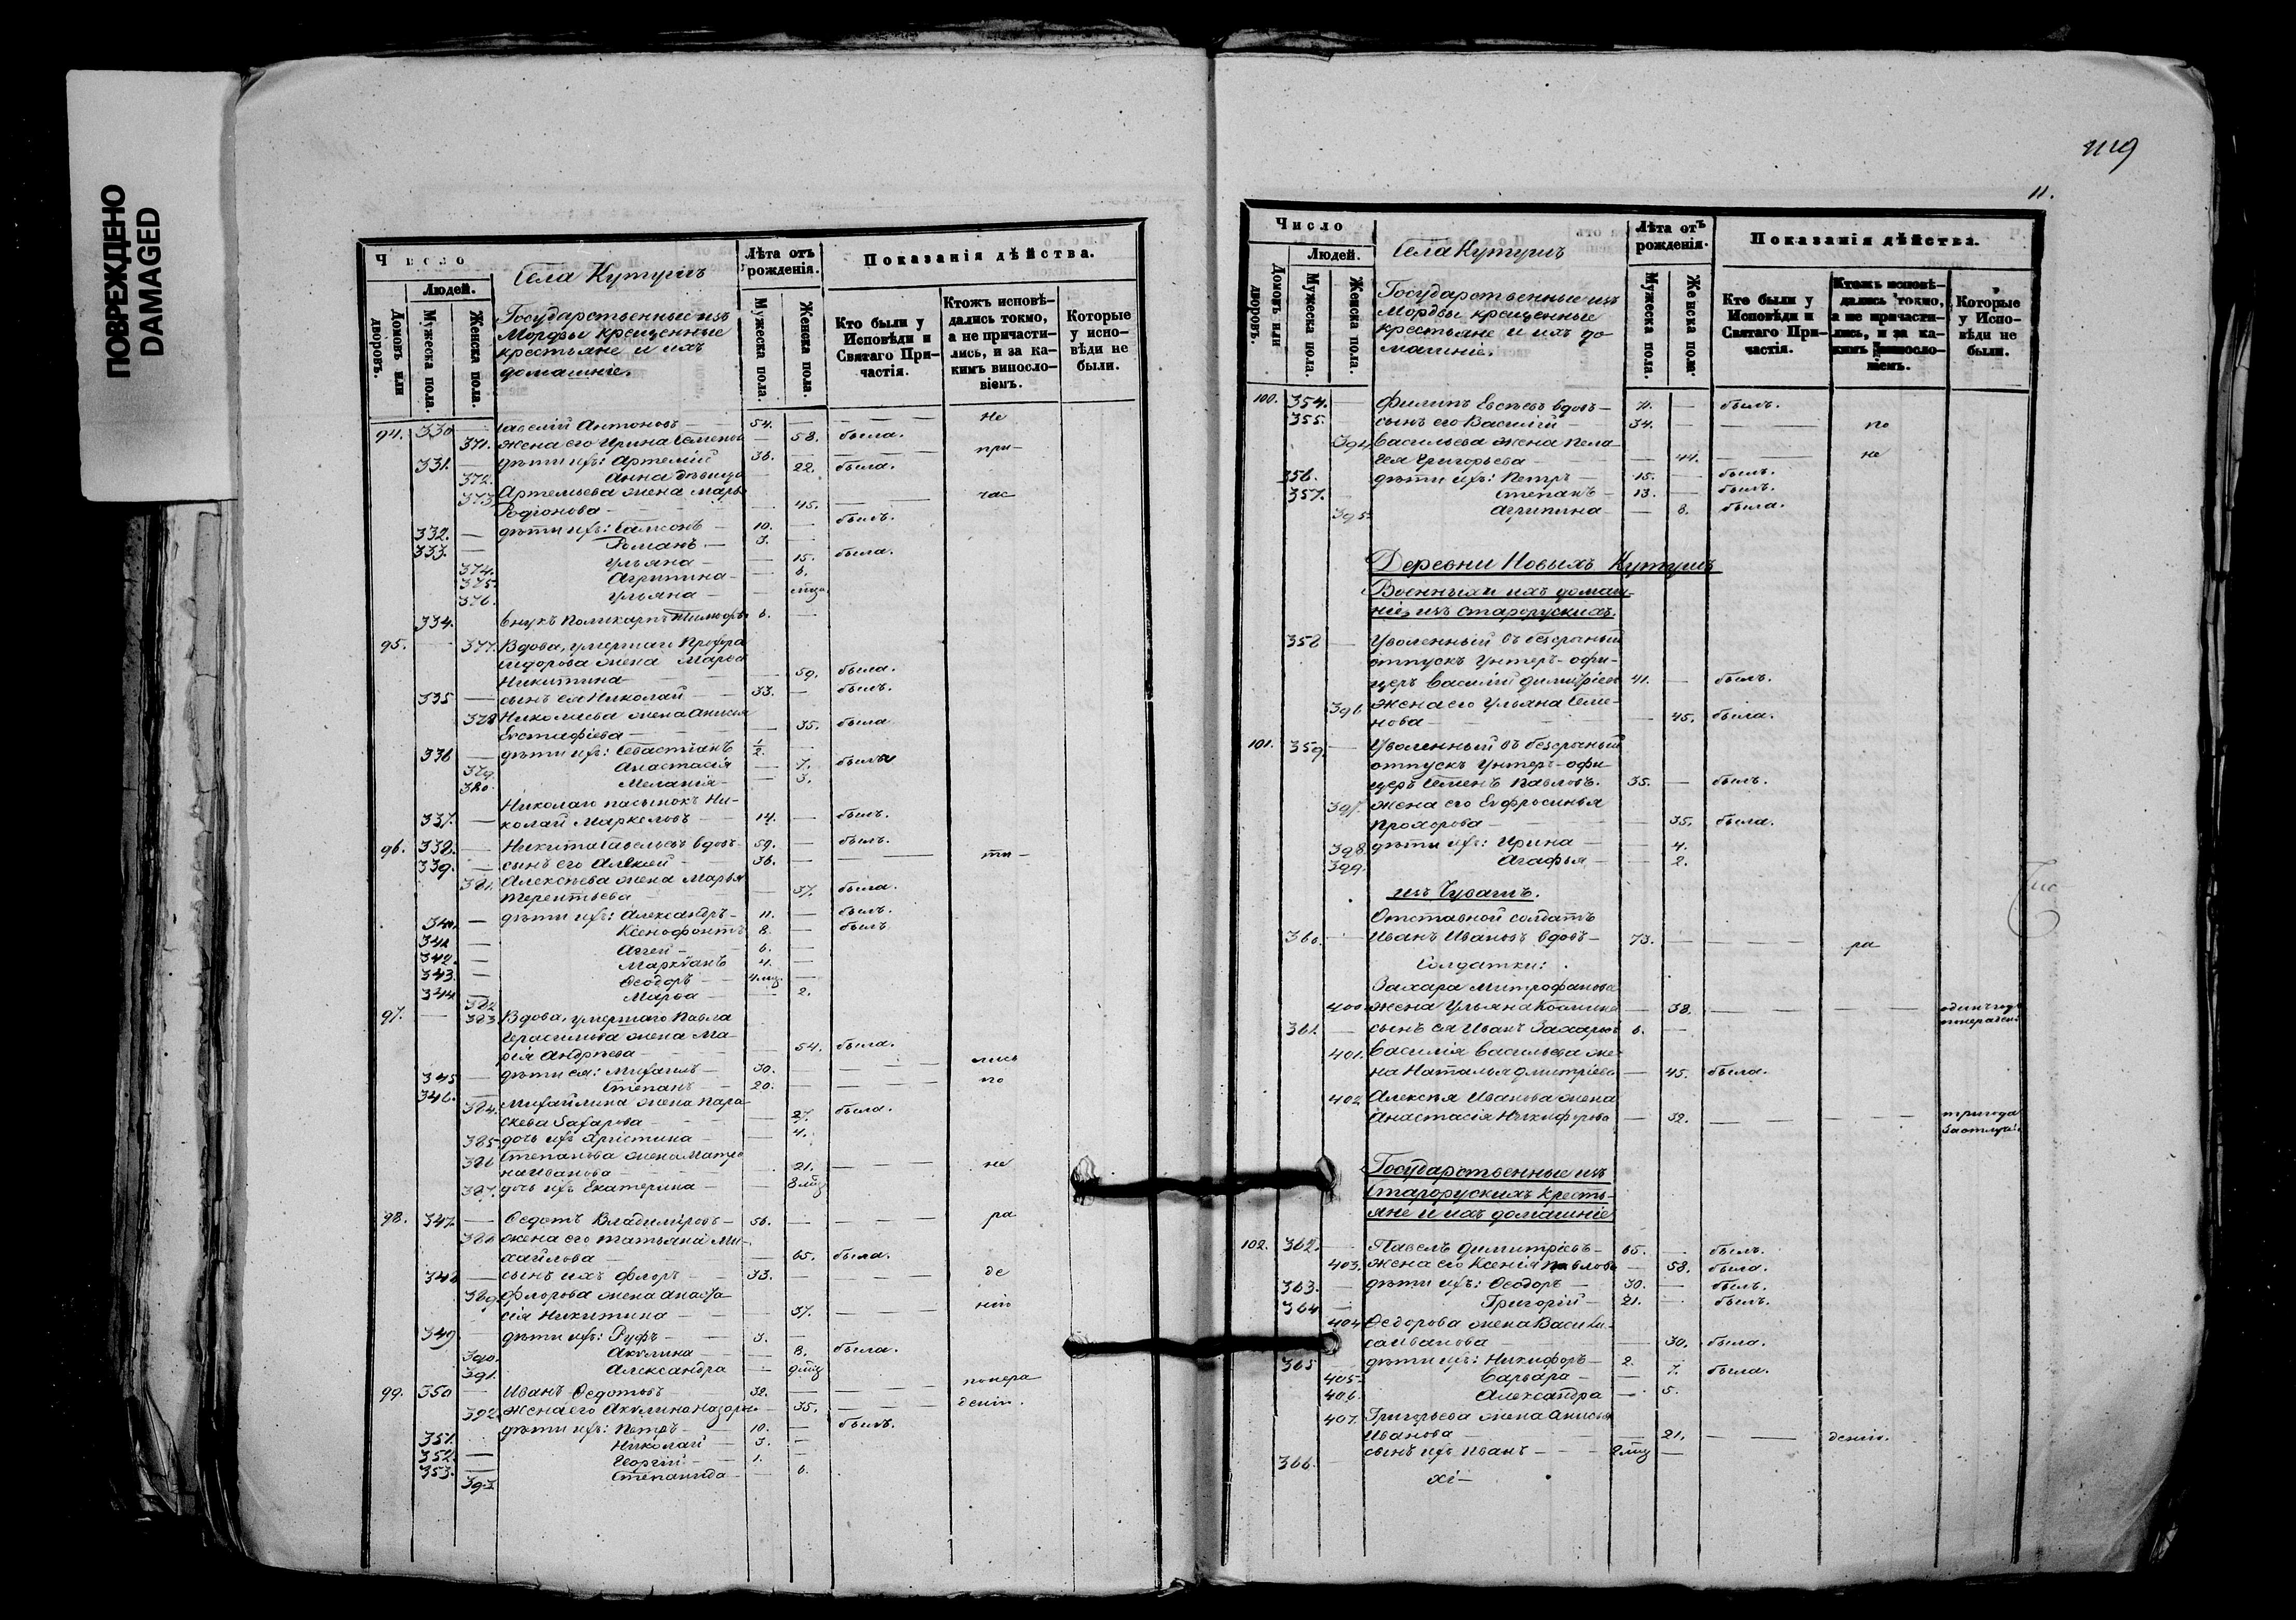 ПОВРЕЖДЕНО
DAMAGED
Число
Людей.
Домовъ или дворовъ.
Мужеска пола.
Женска пола.
Села Кутушъ
Государственные изъ
Мордвы крещенные
крестьяне и ихъ
домашніе.
Лѣта отъ рожденія.
Мужеска пола.
Женска пола.
Показанія дѣйства.
Кто были у Исповѣди и Святаго Причастія.
Ктожъ исповѣдались токмо, а не причастились, и за какимъ винословіемъ.
Которые у исповѣди не были.
94. 330 — Савелій Антоновъ — 54. — — — не
371. жена его Ирина Семенов — 58. была.
331. — дѣти ихъ: Артемій 36. — — при-
372. Анна дѣвица — 22. была.
373. Артемьева жена Марья
Родіонова — 45. — — час
332. — дѣти ихъ: Самсонъ — 10. — былъ.
333. — Романъ — 3. —
374. Ульяна — 15. была.
375. Агрипина — 6.
376. Ульяна — мца
334. внукъ Поликарпъ Тимофѣ 6. —
95. — 377. Вдова, умершаго Прохора
Сидорова жена Марѳа
Никитина — 59. была.
335 — сынъ ея Николай — 33. — былъ.
378 Николаева жена Анисія
Евстафіева — 35. была
336 — дѣти ихъ: Севастіанъ 1/2. —
379. Анастасія — 7. была
380. Меланія — 3.
Николаю пасынокъ Ни-
337. — колай Маркеловъ — 14. — былъ.
96. 338. — Никита Савельевъ вдовъ — 59. — былъ.
339. — сынъ его Алексѣй — 36. — — ти —
381. Алексѣева жена Марья
Терентьева — 37. была.
340. — дѣти ихъ: Александръ — 11. — былъ.
341 — Ксенофонтъ 8. — былъ
342. — Аггей — 6. —
343. — Маркіанъ 4. —
344 — Ѳеодоръ — 4 мц. —
382 Марѳа — 2.
97. — 383 Вдова, умершаго Павла
Герасимова жена Ма-
рія Андрѣева — 54. была.
345 — дѣти ея: Михаилъ — 30. — — лись
346. — Степанъ — 20. — — по
384. Михайлина жена Пара-
скева Захарова — 27. была.
385 дочь ихъ Христина — 4.
386 Степанова жена Матре
на Иванова — 21. — — не
387. дочь ихъ Екатерина — 8 мц
98. 347. — Ѳедотъ Владиміровъ — 56. — — ра
388 жена его Татьяна Ми-
хайлова — 65. была.
348 — сынъ ихъ Флоръ — 33. — — де
389. Флорова жена Анаста
сія Никитина — 37. — — нію
349 — дѣти ихъ: Руфъ — 3. —
390. Акулина — 8. была.
391. Александра — 9 мц
99. 350 — Иванъ Ѳедотовъ 32. — — понера
392. жена его Акулина Назаро — 35. — — денію.
351. дѣти ихъ: Петръ — 10. — былъ.
352. — Николай — 3. —
353. — Георгій — 1. —
393 Степанида — 6.
11.
Число
Людей.
Домовъ или дворовъ.
Мужеска пола.
Женска пола.
Села Кутушъ
Государственные изъ
Мордвы крещенные
крестьяне и ихъ до-
машніе.
Лѣта отъ рожденія.
Мужеска пола.
Женска пола.
Показанія дѣйства.
Кто были у Исповѣди и Святаго Причастія.
Ктожъ исповѣдались токмо, а не причастились, и за какимъ винословіемъ.
Которые у Исповѣди не были.
100. 354. — Филипъ Евсѣевъ вдовъ — 71. — былъ.
355. сынъ его Василій — 34. — — по
394 Васильева жена Пела-
гея Григорьева — 44. — не
356. дѣти ихъ: Петръ — 15. — былъ.
357. — Степанъ — 13. — былъ.
395 Агрипина — 8. была.
Деревни Новыхъ Кутушъ
Военные и ихъ домаш-
ніе, изъ старорускихъ.
358 — Уволенный въ безсрочный
отпускъ Унтеръ-офи-
церъ Василій Димитріевъ 41. — былъ.
396 жена его Ульяна Семе-
нова — 45. была.
101. 359. — Уволенный въ безсрочный
отпускъ Унтеръ-офи-
церъ Семенъ Павловъ. 35. — былъ.
397. жена его Евфросинья
Прохорова — 35. была.
398. дѣти ихъ: Ирина — 4.
399. Агафья — 2.
изъ Чувашъ.
Отставной солдатъ
360. — Иванъ Ивановъ вдовъ — 73. — — ра
Солдатки:
Захара Митрофанова
400. жена Ульяна Козмина — 38. — — одинъ годъ
понераден.
361. — сынъ ея Иванъ Захаровъ 6. —
401. Василія Васильева же-
на Наталья Дмитріева — 45. была.
402 Алексѣя Иванова жена
Анастасія Никифорова — 32. — — три года
За отлуч.
Государственные изъ
Старорускихъ кресть-
яне и ихъ домашніе
102. 362. — Павелъ Димитріевъ — 65. — былъ.
403. жена его Ксенія Павлова — 58. была.
363. — дѣти ихъ: Ѳеодоръ — 30. — былъ.
364 — Григорій — 21. — былъ.
404 Ѳедорова жена Васили-
са Иванова — 30. была.
365 — дѣти ихъ: Никифоръ — 2.
405. Варвара — 7. была.
406. Александра — 5.
407. Григорьева жена Анисья
Иванова — 21. — — денію.
366. — сынъ ихъ Иванъ — 2 мц —